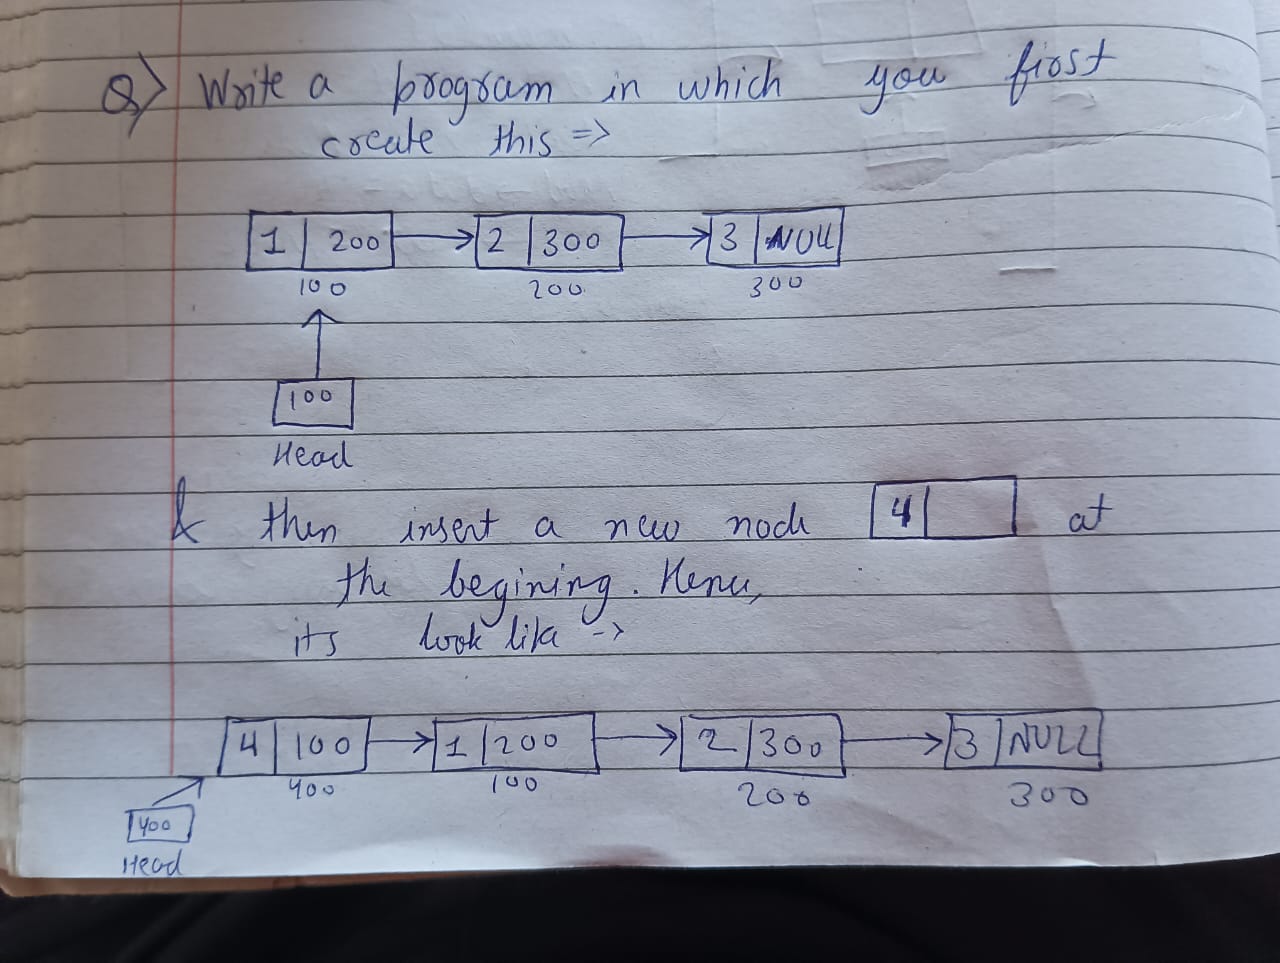 Q) Write a program in which you first
create this =>
1 | 200 → 2 | 300 → 3 | NULL
100 200 300
100
Head
& then insert a new node 4 | at
the begining. Hence,
its look like ->
4 | 100 → 1 | 200 → 2 | 300 → 3 | NULL
400 100 200 300
400
Head